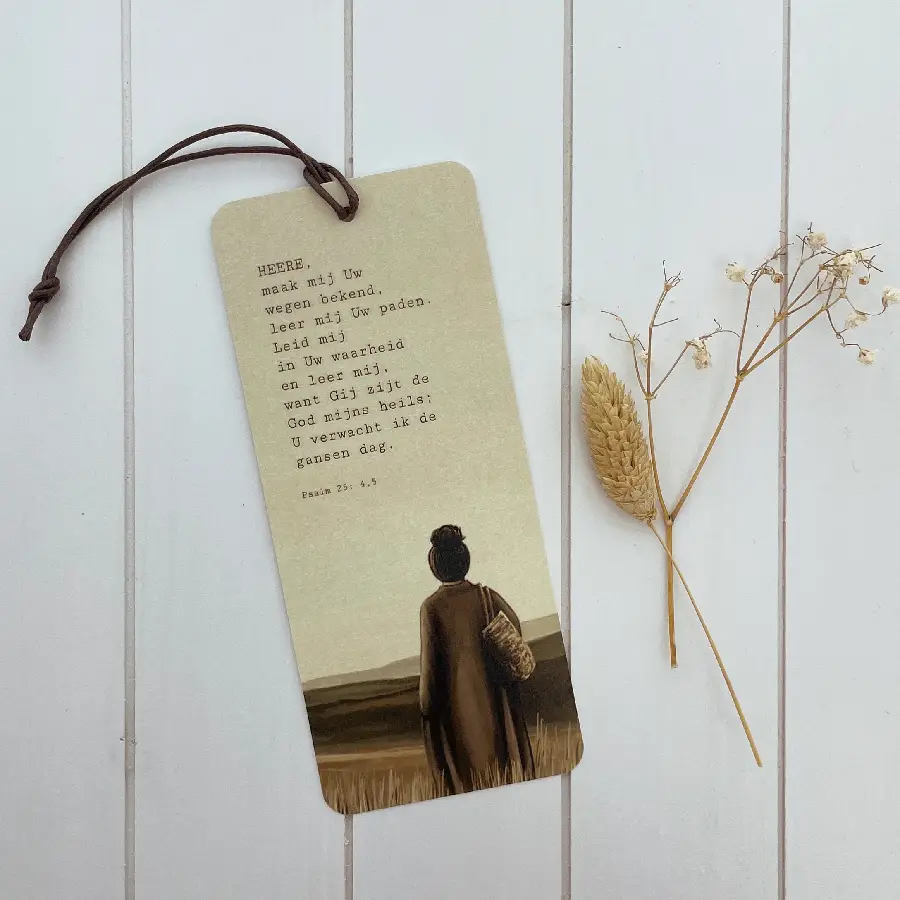 HEERE,
maak mij Uw
wegen bekend,
leer mij Uw paden.
Leid mij
in Uw waarheid
en leer mij,
want Gij zijt de
God mijns heils;
U verwacht ik de
gansen dag.
Psalm 25: 4,5